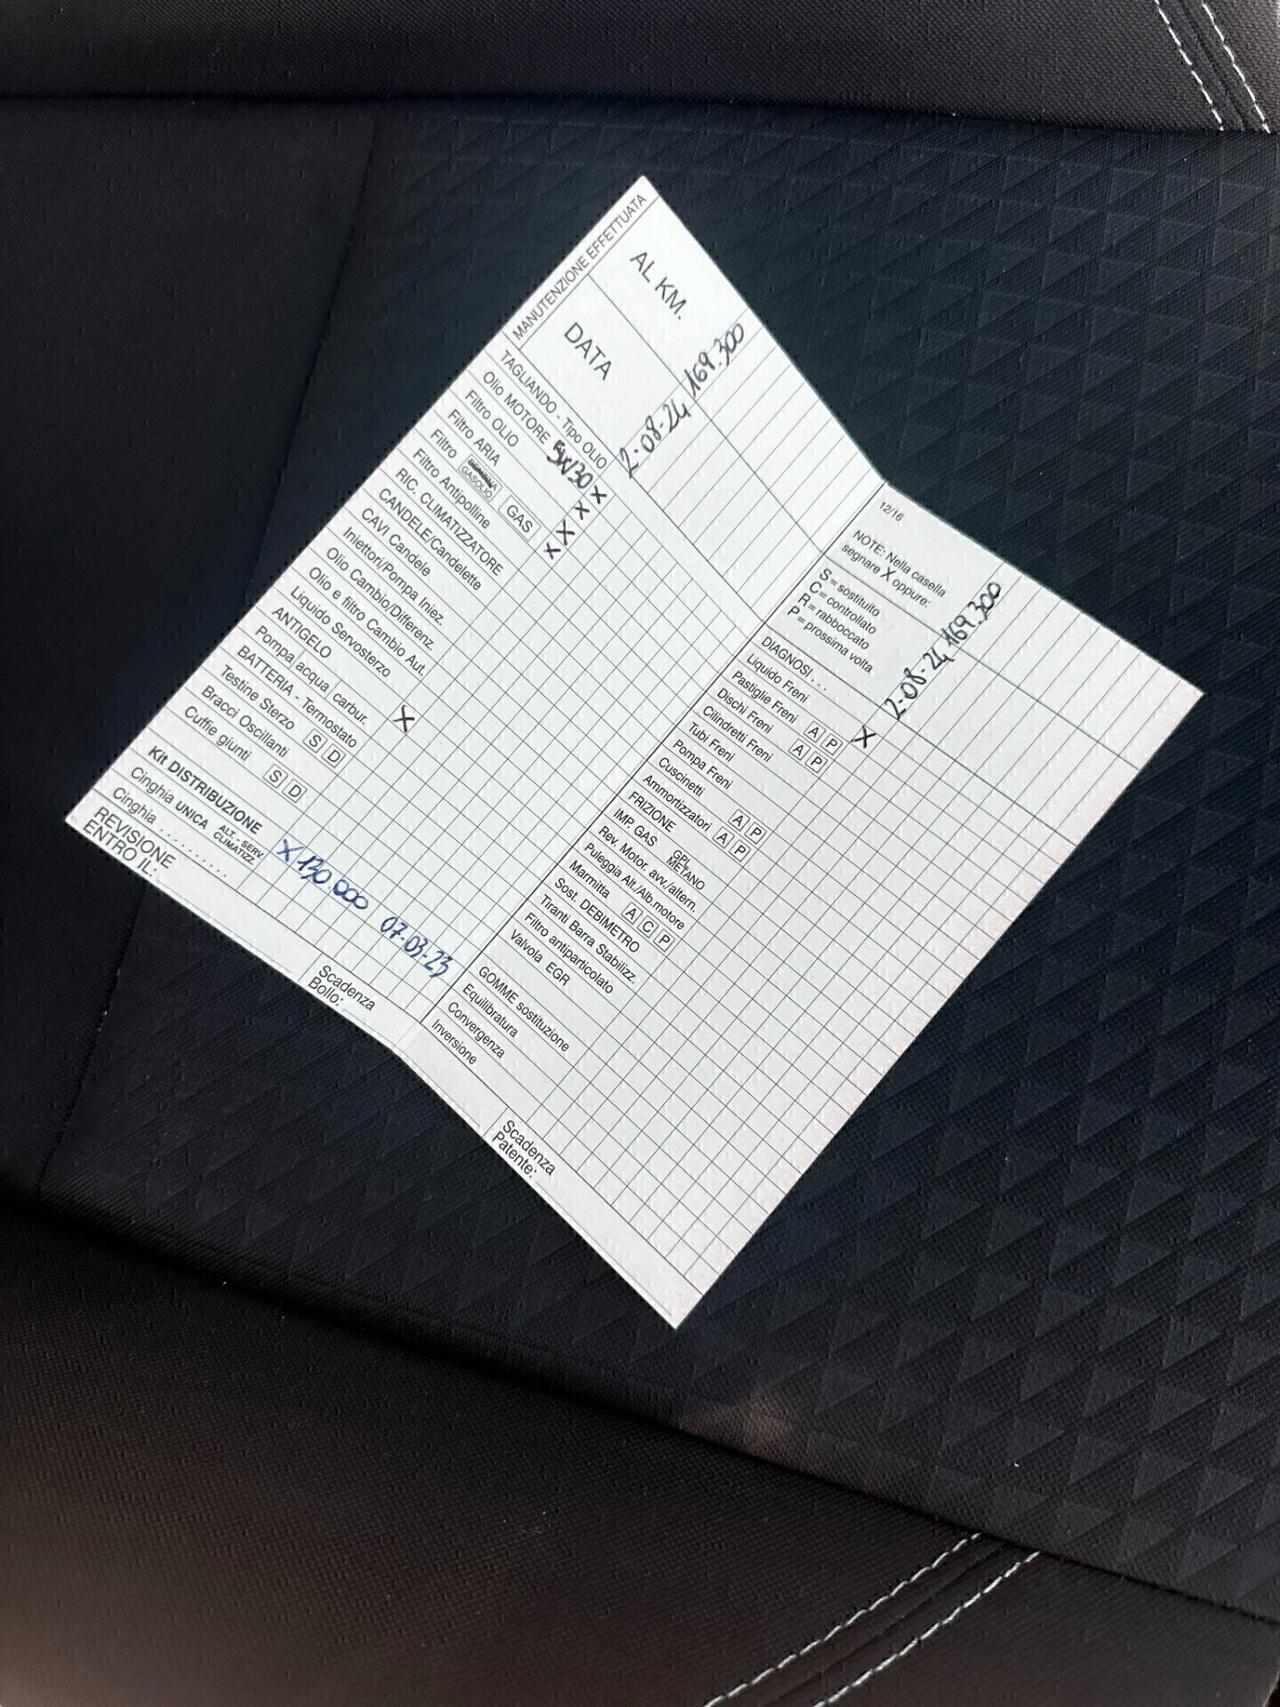 MANUTENZIONE EFFETTUATA
AL KM. 169.300
DATA 2-08-24
TAGLIANDO - Tipo OLIO
Olio MOTORE 5W30 X
Filtro OLIO X
Filtro ARIA X
Filtro GASOLIO GAS X
Filtro Antipolline
RIC. CLIMATIZZATORE
CANDELE/Candelette
CAVI Candele
Iniettori/Pompa Iniez.
Olio Cambio/Differenz.
Olio e filtro Cambio Aut.
Liquido Servosterzo
ANTIGELO
Pompa acqua/carbur. X
BATTERIA - Termostato
Testine Sterzo S D
Bracci Oscillanti
Cuffie giunti S D
Kit DISTRIBUZIONE X 130 000 07-03-23
Cinghia UNICA ALT.+SERV. CLIMATIZZ.
Cinghia ..........
REVISIONE
ENTRO IL:
Scadenza
Bollo:
12/16
NOTE: Nella casella
segnare X oppure:
S = sostituito
C = controllato
R = rabboccato
P = prossima volta
169.300
2-08-24
DIAGNOSI . . . X
Liquido Freni
Pastiglie Freni A P
Dischi Freni A P
Cilindretti Freni
Tubi Freni
Pompa Freni
Cuscinetti A P
Ammortizzatori A P
FRIZIONE
IMP. GAS GPL METANO
Rev. Motor. avv./altern.
Puleggia Alt./Alb.motore
Marmitta A C P
Sost. DEBIMETRO
Tiranti Barra Stabilizz.
Filtro antiparticolato
Valvola EGR
GOMME sostituzione
Equilibratura
Convergenza
Inversione
Scadenza
Patente: